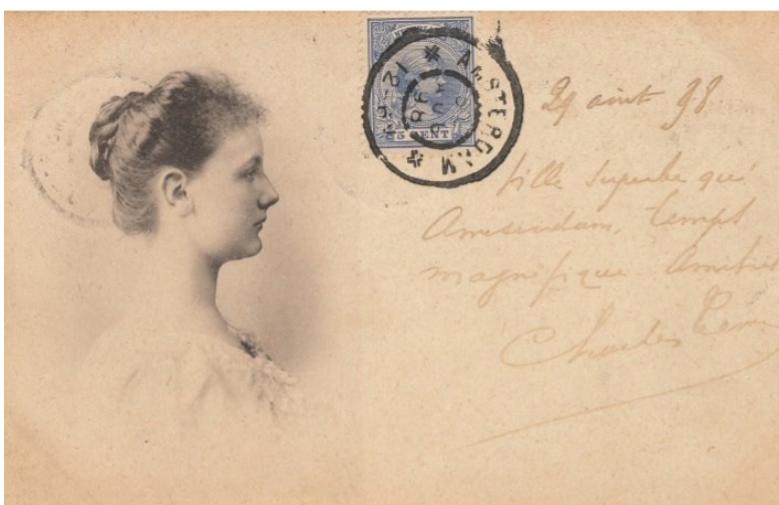 AMSTERDAM
5 CENT
29 aout 98
Ville superbe que
Amsterdam, temps
magnifique Amitiés
Charles